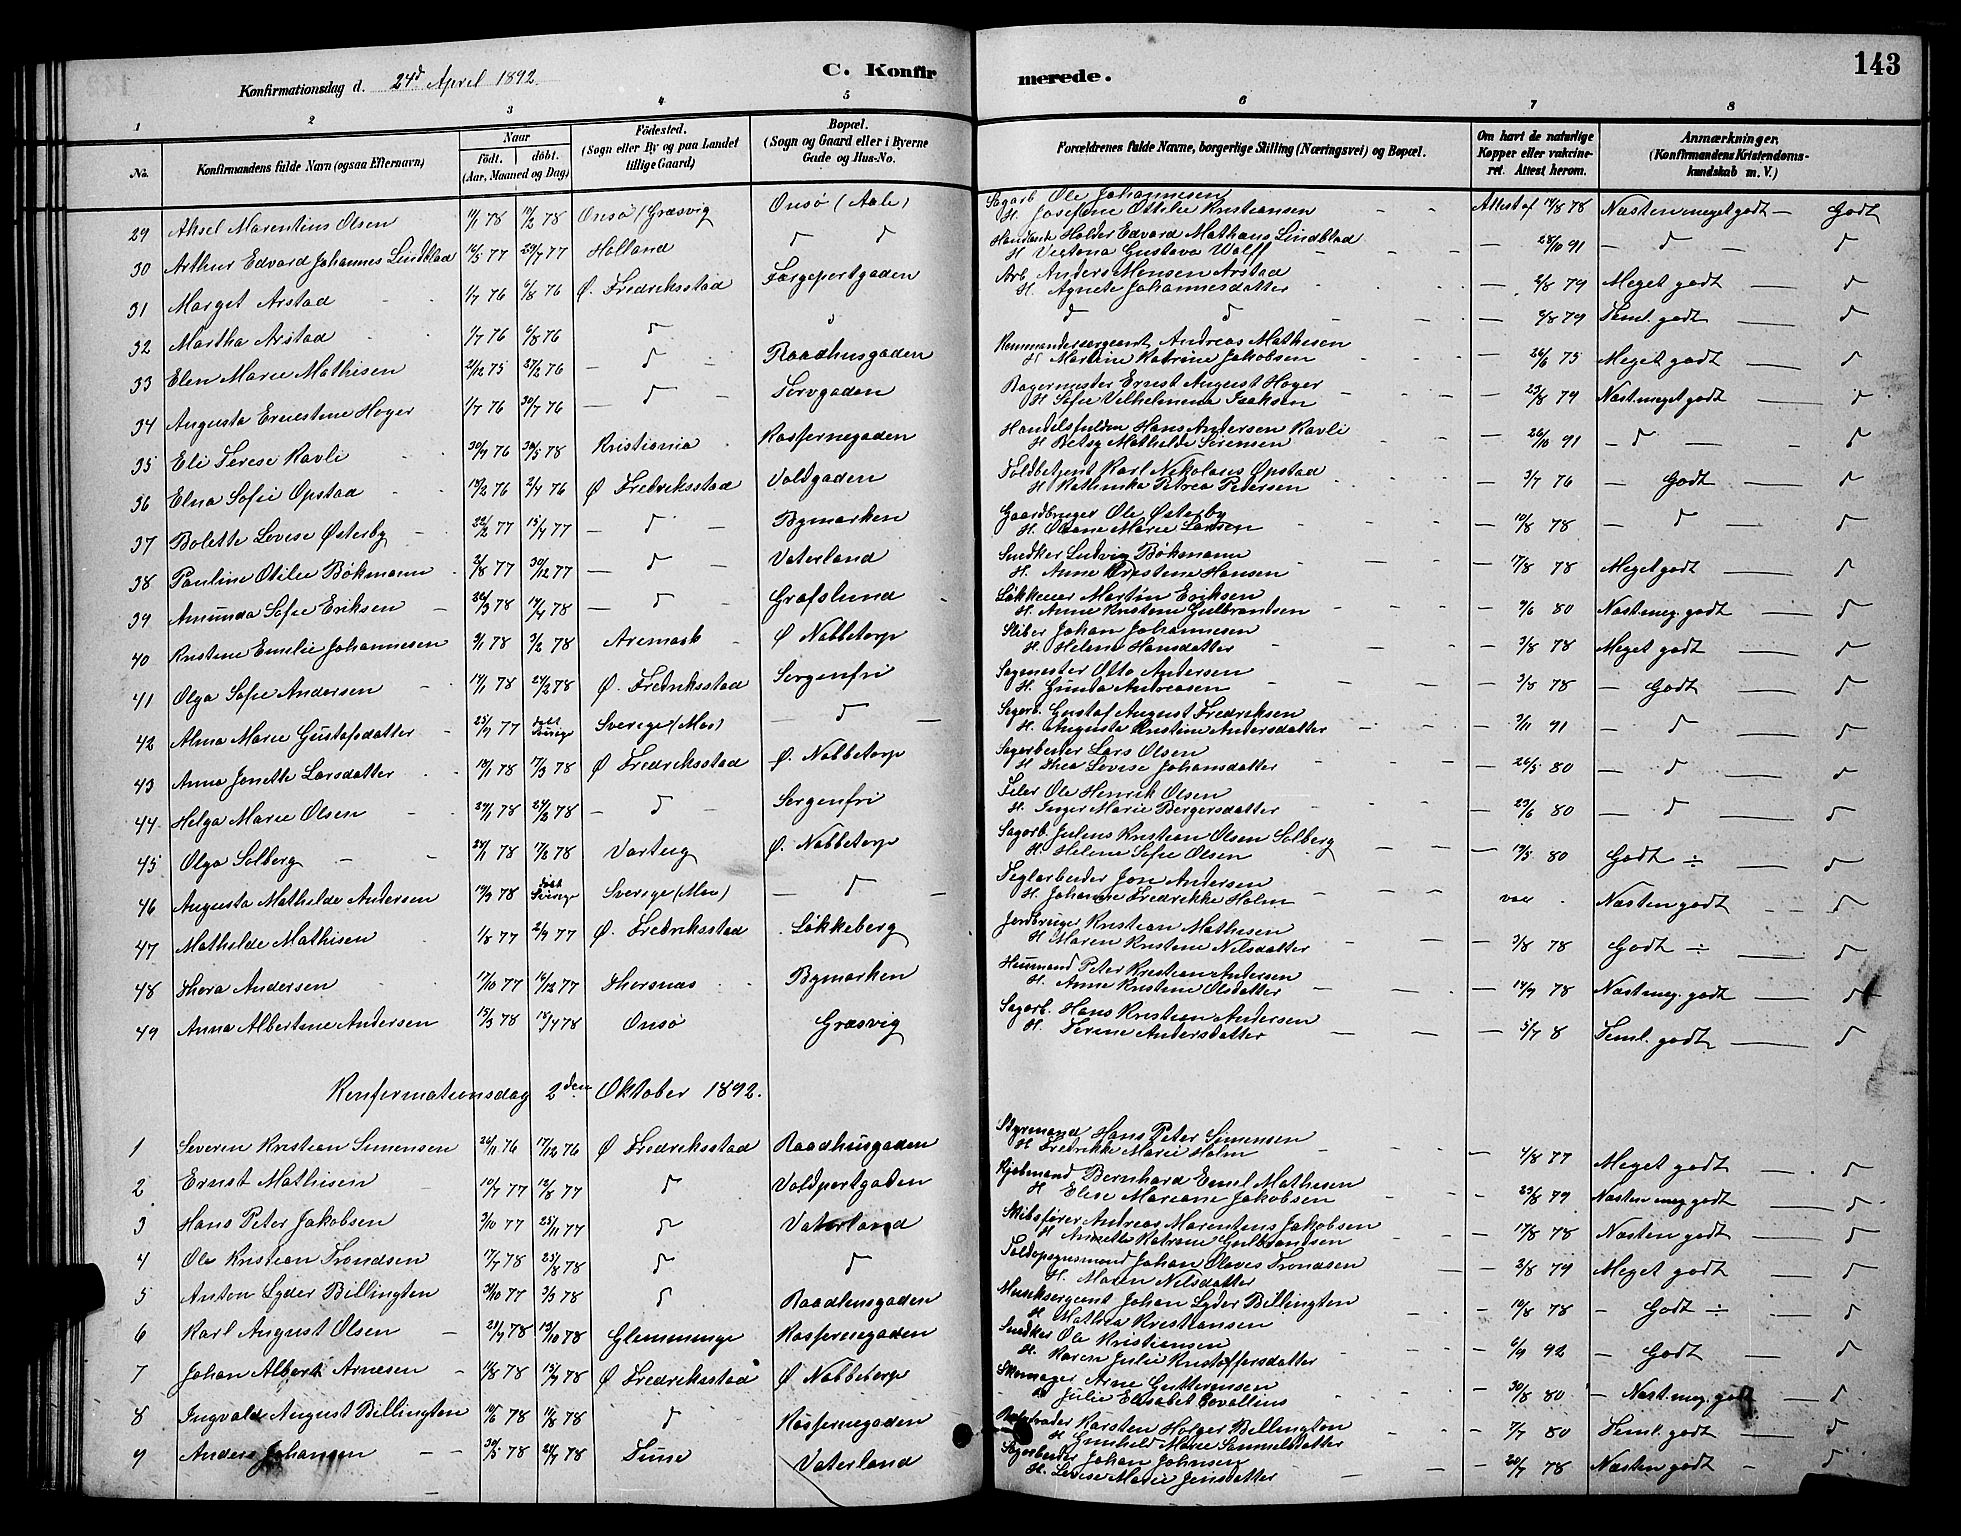 143
Konfirmationsdag d. 24d April 1892.
C. Konfirmerede.
1 2 3 4 5 6 7 8
No. Konfirmandens fulde Navn (ogsaa Efternavn) Naar födt. döbt. (Aar, Maaned og Dag) Födested. (Sogn eller By og paa Landet tillige Gaard) Bopæl. (Sogn og Gaard eller i Byerne Gade og Hus-No. Forældrenes fulde Navne, borgerlige Stilling (Næringsvei) og Bopæl. Om havt de naturlige Kopper eller vakcineret. Attest herom. Anmærkninger, (Konfirmandens Kristendomskundskab m. V.)
29 Aksel Marentius Olsen 78 78 Onsø (Græsvig Onsø (Aale) Sagarb Ole Johannesen H. Josefine Ottilie Kristiansen Attest af 78 Næsten meget godt — Godt
30 Arthur Edvard Johannes Lindblad 14/5 77 29/7 77 Holland d d Holder Edvard Mathæus Lindblad H. Viktoria Gustava Wolff — 28/10 91 — d — d
31 Marget Arstad 1/7 76 6/8 76 Ø. Fredriksstad Færgeportgaden Arb. Anders Monsen Arstad H. Agnete Johannesdatter — 2/8 79 Meget godt — d
32 Martha Arstad 1/7 76 6/8 76 d d d d — 79 Teml. godt — d
33 Elen Marie Mathisen 21/12 75 27/2 76 — d Raadhusgaden Kommandersergeant Andreas Mathisen H. Martine Katrine Jakobsen — 26/6 75 Meget godt — d
34 Augusta Ernestine Høyer 1/7 76 30/7 76 — d — Torvgaden Bagermester Ernst August Høyer H. Sofie Vilhelmine Isaksen — 23/8 79 Næst. meget godt — d
35 Eli Terese Ravli 30/9 76 78 Kristiania Kasernegaden Handelsfuldm Hans Andersen Ravli H. Betsy Mathilde Sørensen — 26/10 91 — d — d
36 Elna Sofie Opstad 19/2 76 2/4 76 Ø Fredriksstad Voldgaden Toldbetjent Karl Nikolaus Opstad H. Kathinka Petrea Petersen — 3/7 76 — Godt — d
37 Bolette Lovise Østerby 22/2 77 15/4 77 — d — Bymarken Gaardbruger Ole Østerby H. Oleane Marie Larsen — 10/8 78 — d — d
38 Pauline Otilie Bøkmann 2/8 77 30/12 77 — d — Vaterland Snedker Ludvig Bøkmann H. Anne Kristine Hansen — 17/8 78 Meget godt — d
39 Amunda Sofie Eriksen 26/3 78 14/4 78 — d Grafslund Løkkeeier Martin Eriksen H. Anne Kristine Gulbrandsen — 9/6 80 Næst. meg. godt — d
40 Kristine Emilie Johannesen 3/1 78 3/2 78 Aremark Ø Nabbetorp Sliber Johan Johannesen H. Helene Hansdatter — 3/8 78 Meget godt — d
41 Olga Sofie Andersen 14/1 78 24/2 78 Ø. Fredriksstad Sorgenfri Sagmester Otto Andersen H. Gunda Andreasen — 3/8 78 — Godt — d
42 Alma Marie Gustafsdatter 25/9 77 døbt Sverige Sverige (Mos) — d — Sagarb. Gustaf August Fredriksen H. Augusta Kristine Andersdatter — 3/11 91 — d — d
43 Anna Jenette Larsdatter 78 17/3 78 Ø Fredriksstad Ø. Nabbetorp Sagarbeider Lars Olsen H. Thea Lovise Johansdatter — 26/5 80 — d — d
44 Helga Marie Olsen 29/1 78 24/3 78 — d — Sorgenfri Feier Ole Henrik Olsen H. Inger Marie Bergersdatter — 29/6 80 — d — d
45 Olga Solberg 28/1 78 78 Varteig Ø. Nabbetorp Sagarb. Julius Kristian Olsen Solberg H. Helene Sofie Olsen — 19/5 80 Godt ÷ — d
46 Augusta Mathilde Andersen 19/3 78 døbt Sverige Sverige (Mos) — d — Teglarbeider Jon Andersen H. Johanne Fredrikke Holm vac Næsten godt — d
47 Mathilde Mathisen 1/8 77 2/9 77 Ø. Fredriksstad Løkkeberg Jordbruger Kristian Mathisen H. Maren Kristine Nilsdatter — 3/8 78 Godt ÷ — d
48 Thora Andersen 17/10 77 16/12 77 Thorsnæs Bymarken Husmand Peter Kristian Andersen H. Anne Kristine Olsdatter — 14/9 78 Næst. meg. godt — d
49 Anna Albertine Andersen 15/3 78 18/4 78 Onsø Græsvig Sagarb. Hans Kristian Andersen H. Terine Andersdatter — 5/7 8 Teml. godt — d
Konfirmationsdag 2den Oktober 1892.
1 Severin Kristian Simensen 26/11 76 17/12 76 Ø Fredriksstad Raadhusgaden Styrmand Hans Peter Simensen H. Fredrikke Marie Holm — 4/8 77 Meget godt — d
2 Ernst Mathisen 10/7 77 12/8 77 d Voldportgaden Kjøbmand Bernhard Emil Mathisen H. Elise Mariane Jakobsen — 29/8 79 Næsten meg godt — d
3 Hans Peter Jakobsen 3/10 77 25/11 77 d Vaterland Skibsfører Andreas Marentius Jakobsen H. Annette Katrine Gulbrandsen — 17/8 78 Næsten godt — d
4 Ole Kristian Trondsen 17/7 78 25/8 78 d d Toldopsynsmand Johan Olaves Trondsen H. Maren Nilsdatter — 2/8 79 Meget godt — d
5 Anton Lyder Billington 31/10 77 3/3 78 d Raadhusgaden Musiksergeant Johan Lyder Billington H. Mathea Kristiansen — 10/8 78 — Godt ÷ — d
6 Karl August Olsen 21/9 78 13/10 78 Glemminge Kasernegaden Snedker Ole Kristiansen H. Karen Julie Kristoffersdatter — 6/9 92 — Godt — d
7 Johan Albert Arnesen 78 15/9 78 Ø Fredriksstad Ø Nabbetorp Skomager Arne Guttormsen Julie Elisabet Covallius — 30/8 80 — Næst. meg. godt — d
8 Ingvald August Billington 10/6 78 11/8 78 d Kasernegaden Karsten Holger Billington H. Gunhild Marie Samuelsdatter — 7/7 80 Teml. godt d
9 Anders Johansen 30/5 78 78 Tune Vaterland Sagarbeider Johan Johnsen H. Lovise Marie Jensdatter — 20/7 78 Næsten godt — d